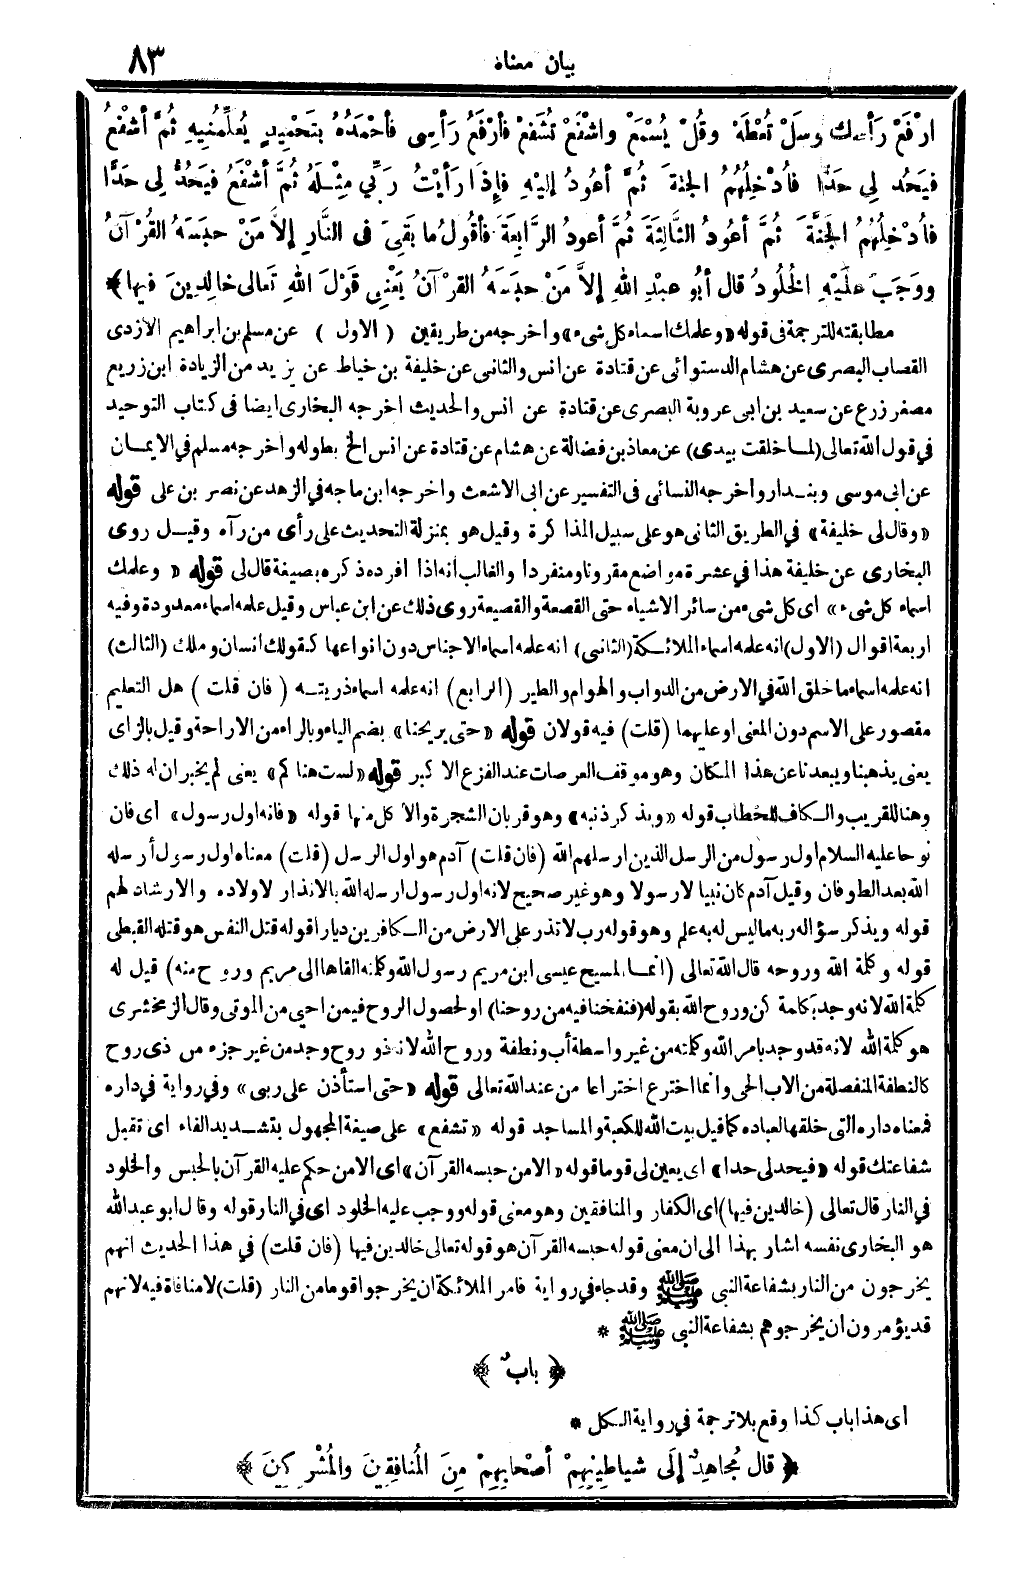 بيان معناه ٨٣
ارْفَعْ رَأْسَكَ وسَلْ تُعْطَهْ وقُلْ يُسْمَعْ واشْفَعْ تُشَفَّعْ فأرْفَعُ رَأسِى فأحْمَدُهُ بتَحْمِيدٍ يُعَلِّمُنِيهِ ثُمَّ أشْفَعُ
فيَحُد لِي حَدًّا فأُدْخِلُهُمُ الجنةَ ثُمَّ أعُودُ إليْهِ فإذَا رَأيْتُ رَبِّي مِثْلَهُ ثُمَّ أشْفَعُ فيَحُدُّ لِى حَدًّا
فأُدْخِلُهُمُ الجَنَّةَ ثُمَّ أعُودُ الثَّالِثَةَ ثُمَّ أعودُ الرَّابِعَةَ فأقُولُ ما بَقِىَ فى النَّارِ إلاَّ مَنْ حبَسَهُ القُرْآنُ
ووَجَبَ علَيْهِ الخُلُودُ قال أبُو عبْدِ اللهِ إلاَّ مَنْ حبَسَهُ القرْآنُ يَعْنِى قَوْلَ اللهِ تَعالى خالِدِينَ فيها﴾
مطابقته للترجمة فى قوله «وعلمك اسماء كل شىء» واخرجه من طريقين (الاول) عن مسلم بن ابراهيم الازدى
القصاب البصرى عن هشام الدستوائى عن قتادة عن انس والثانى عن خليفة بن خياط عن يزيد من الزيادة ابن زريع
مصغر زرع عن سعيد بن ابى عروبة البصرى عن قتادة عن انس والحديث اخرجه البخارى ايضا فى كتاب التوحيد
في قول الله تعالى (لما خلقت بيدى) عن معاذ بن فضالة عن هشام عن قتادة عن انس الخ بطوله واخرجه مسلم في الايمان
عن ابى موسى وبندار واخرجه النسائى فى التفسير عن ابى الاشعث واخرجه ابن ماجه في الزهد عن نصر بن على قوله
«وقال لى خليفة» في الطريق الثانى هو على سبيل المذاكرة وقيل هو بمنزلة التحديث على رأى من رآه وقيل روى
البخارى عن خليفة هذا في عشرة مواضع مقرونا ومنفردا والغالب أنه اذا افرده ذكره بصيغة قال لى قوله «وعلمك
اسماء كل شىء» اى كل شىء من سائر الاشياء حتى القصعة والقصيعة روى ذلك عن ابن عباس وقيل علمه اسماء معدودة وفيه
اربعة اقوال (الاول) انه علمه اسماء الملائكة (الثانى) انه علمه اسماء الاجناس دون انواعها كقولك انسان وملك (الثالث)
انه علمه اسماء ما خلق الله في الارض من الدواب والهوام والطير (الرابع) انه علمه اسماء ذريته (فان قلت) هل التعليم
مقصور على الاسم دون المعنى او عليهما (قلت) فيه قولان قوله «حتى يريحنا» بضم الياء وبالراء من الاراحة وقيل بالزاى
يعنى يذهبنا ويبعدنا عن هذا المكان وهو موقف العرصات عند الفزع الاكبر قوله «لست هناكم» يعنى لم يخبر ان له ذلك
وهنا للقريب والكاف للخطاب قوله «ويذكر ذنبه» وهو قربان الشجرة والاكل منها قوله «فانه اول رسول» اى فان
نوحا عليه السلام اول رسول من الرسل الذين ارسلهم الله (فان قلت) آدم هو اول الرسل (قلت) معناه اول رسول أرسله
الله بعد الطوفان وقيل آدم كان نبيا لا رسولا وهو غير صحيح لانه اول رسول ارسله الله بالانذار لاولاده والارشاد لهم
قوله ويذكر سؤاله ربه ما ليس له به علم وهو قوله رب لا تذر على الارض من الكافرين ديارا قوله قتل النفس هو قتله القبطى
قوله وكلمة الله وروحه قال الله تعالى (انما المسيح عيسى ابن مريم رسول الله وكلمته القاها الى مريم وروح منه) قيل له
كلمة الله لانه وجد بكلمة كن وروح الله بقوله (فنفخنا فيه من روحنا) او لحصول الروح فيمن احيى من الموتى وقال الزمخشرى
هو كلمة الله لانه قد وجد بامر الله وكلمته من غير واسطة أب ونطفة وروح الله لانه ذو روح وجد من غير جزء من ذى روح
كالنطفة المنفصلة من الاب الحى وانما اخترع اختراعا من عند الله تعالى قوله «حتى استأذن على ربى» وفي رواية في داره
فمعناه داره التى خلقها لعباده كما قيل بيت الله للكعبة والمساجد قوله «تشفع» على صيغة المجهول بتشديد الفاء اى تقبل
شفاعتك قوله «فيحد لى حدا» اى يعين لى قوما قوله «الا من حبسه القرآن» اى الا من حكم عليه القرآن بالحبس والخلود
في النار قال تعالى (خالدين فيها) اى الكفار والمنافقين وهو معنى قوله ووجب عليه الخلود اى في النار قوله وقال ابو عبد الله
هو البخارى نفسه اشار بهذا الى ان معنى قوله حبسه القرآن هو قوله تعالى خالدين فيها (فان قلت) في هذا الحديث انهم
يخرجون من النار بشفاعة النبى ﷺ وقد جاء في رواية فامر الملائكة ان يخرجوا قوما من النار (قلت) لا منافاة فيه لانهم
قد يؤمرون ان يخرجوهم بشفاعة النبى ﷺ *
﴿ بابٌ ﴾
اى هذا باب كذا وقع بلا ترجمة في رواية الكل *
﴿ قال مُجاهِدٌ إلَى شياطِينِهِمْ أصْحابِهِمْ مِنَ المُنافِقِينَ والمُشْرِكِينَ ﴾